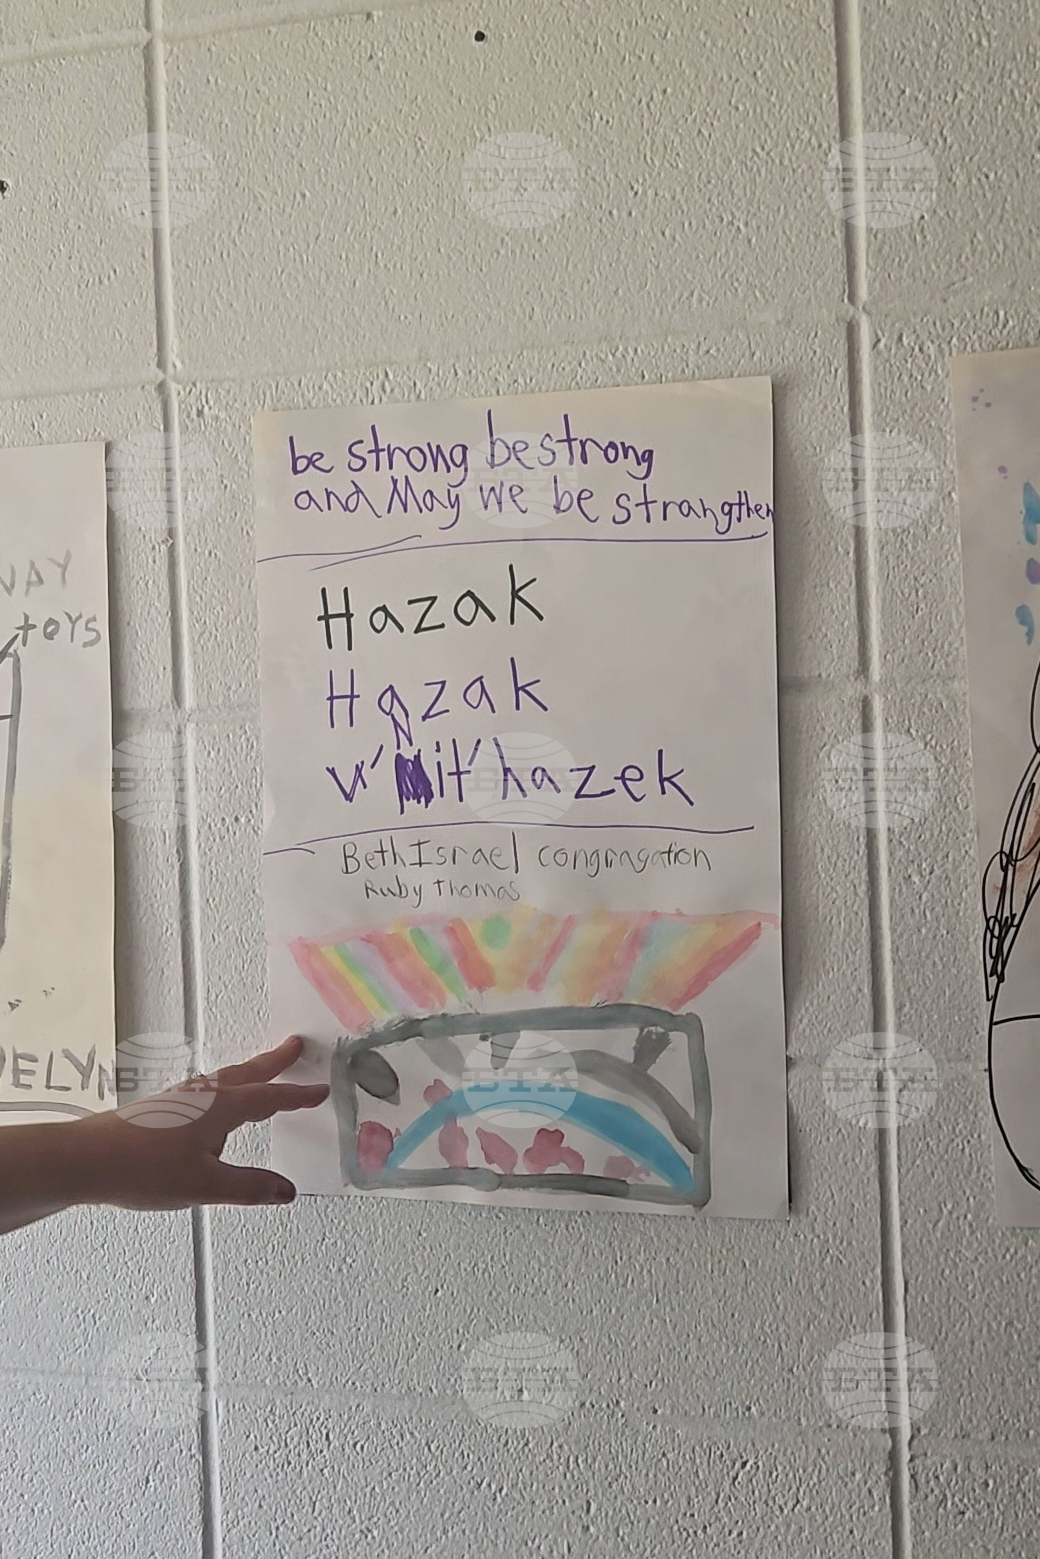 be strong be strong
and May we be strangthen
Hazak
Hazak
v' nit'hazek
Beth Israel congragation
Ruby Thomas
toys
BTA